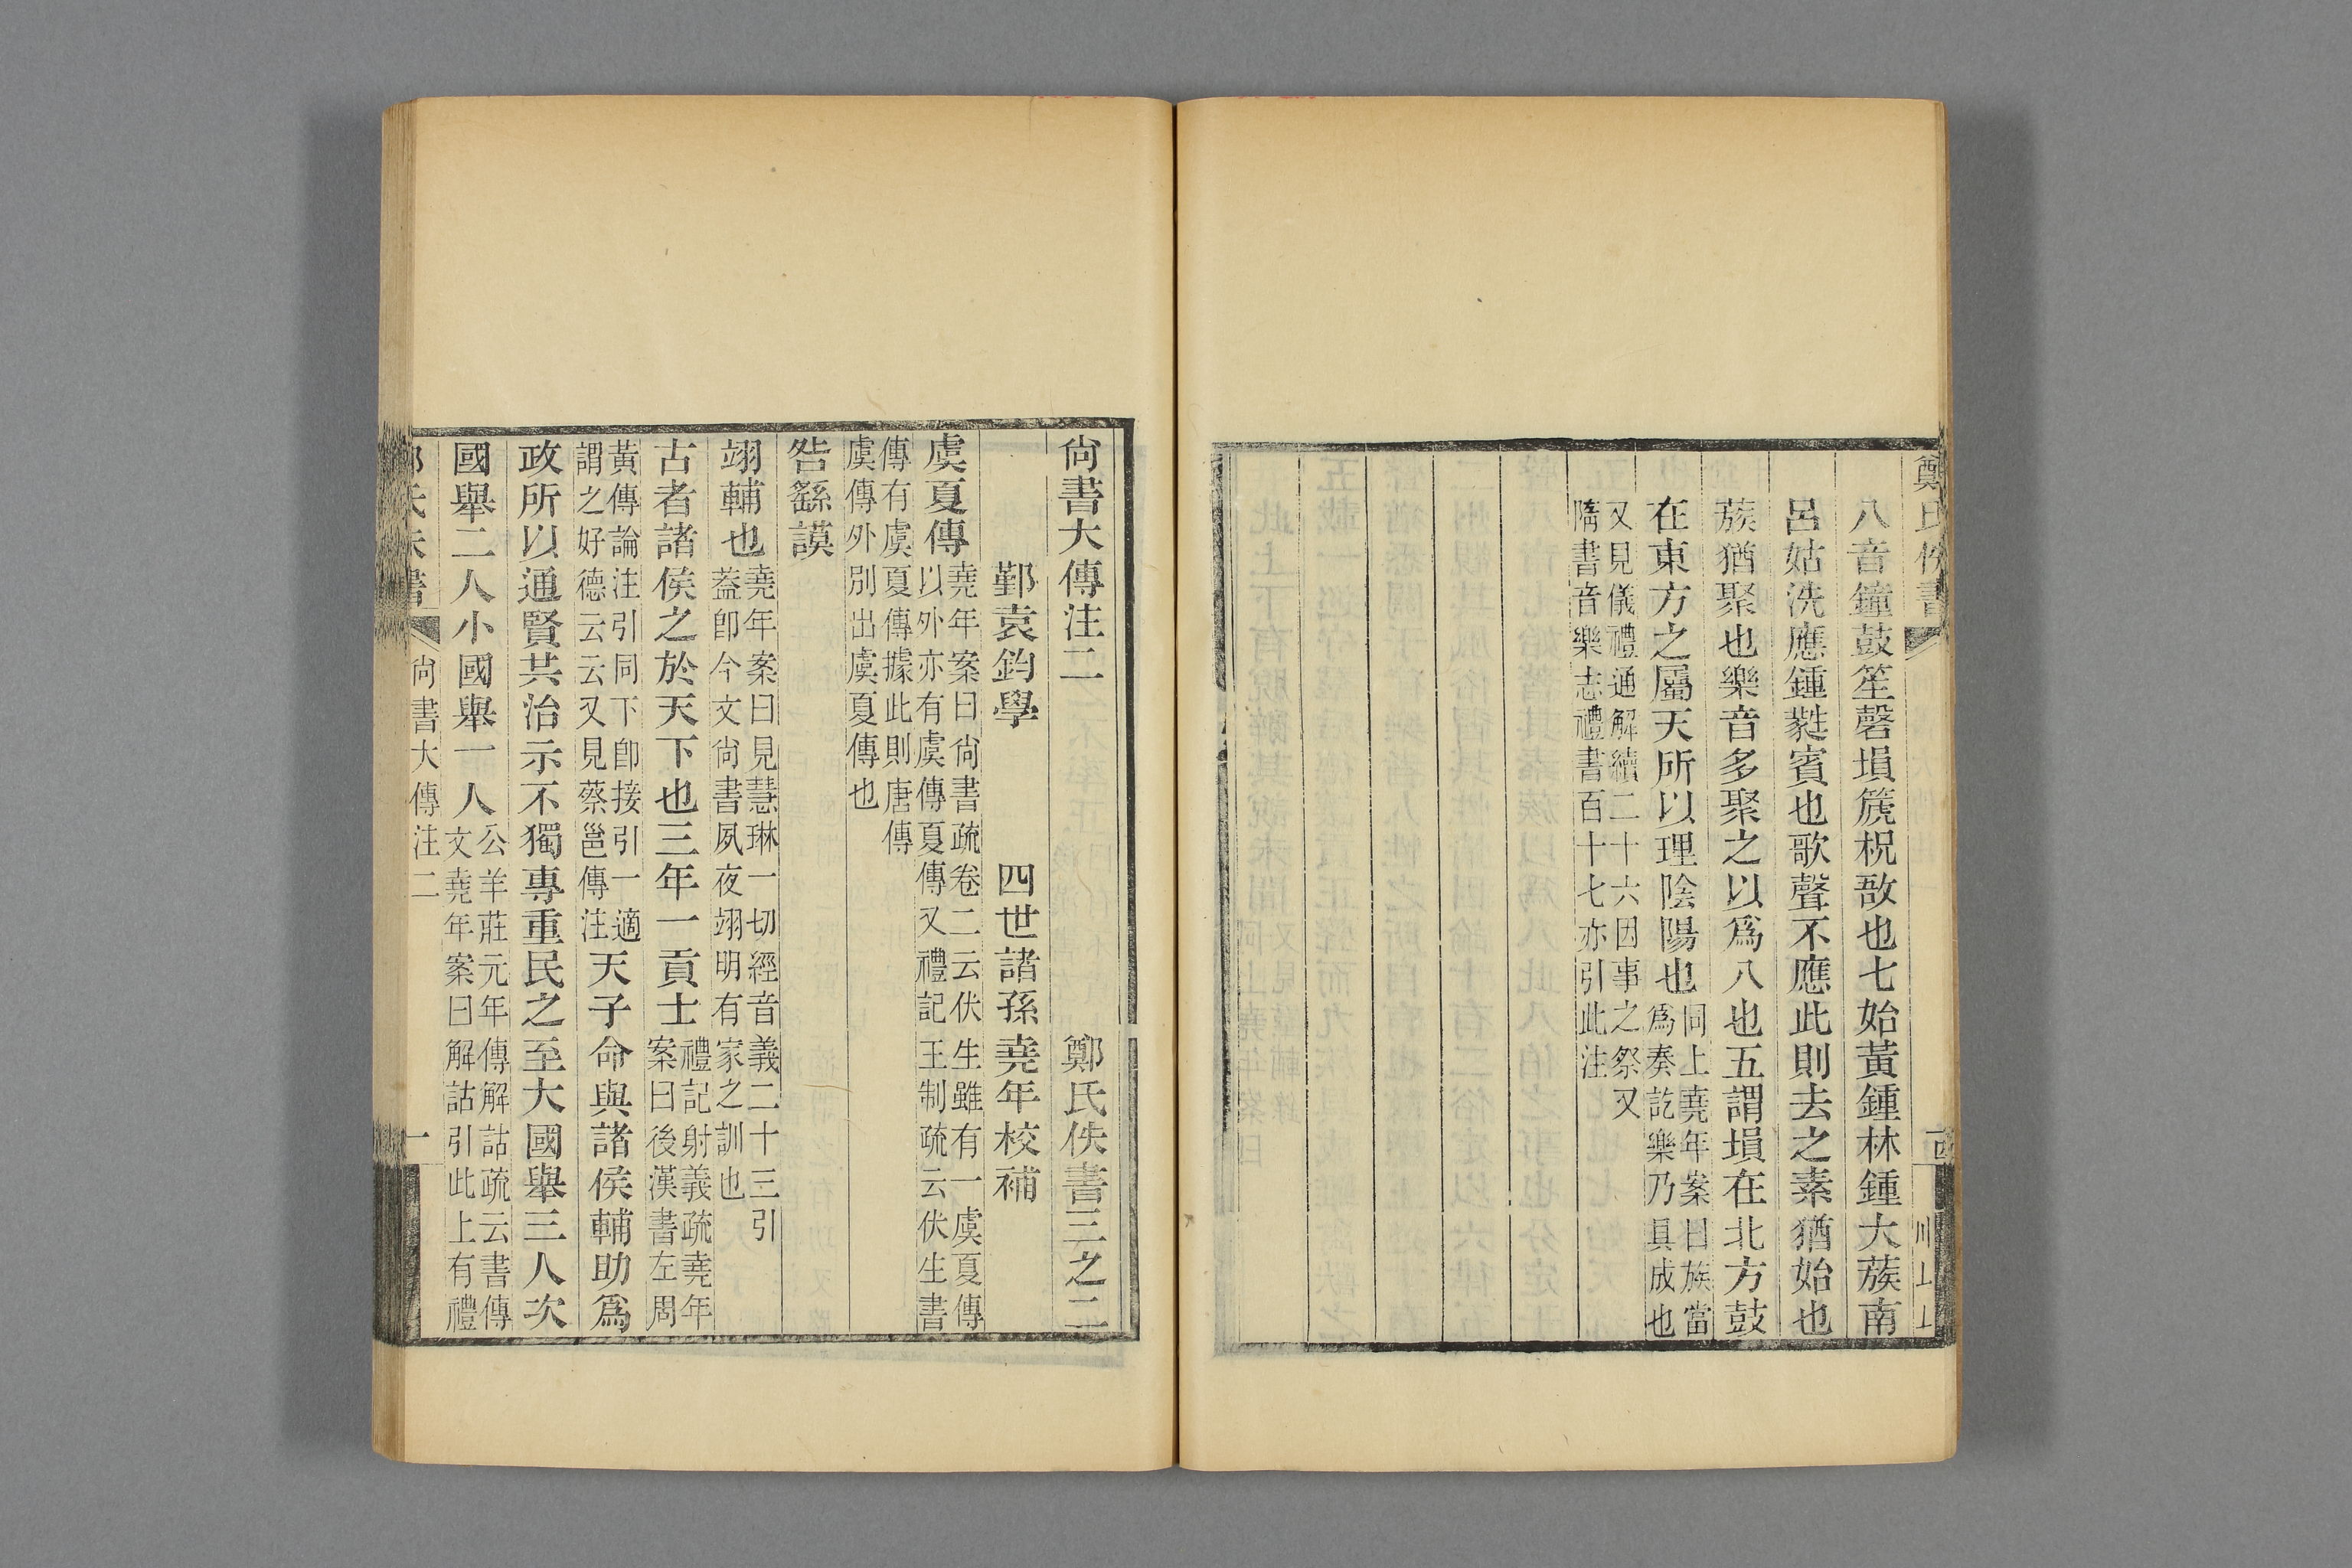 鄭氏佚書
八音鐘鼓笙磬塤篪柷敔也七始黃鍾林鍾大蔟南
呂姑洗應鍾蕤賓也歌聲不應此則去之素猶始也
蔟猶聚也樂音多聚之以爲八也五謂塤在北方鼓
在東方之屬天所以理陰陽也同上堯年案曰族當
爲奏訖樂乃具成也
又見儀禮通解續二十六因事之祭又
隋書音樂志禮書百十七亦引此注
尙書大傳注二 鄭氏佚書三之二
鄞袁鈞學 四世諸孫堯年校補
虞夏傳堯年案曰尙書疏卷二云伏生雖有一虞夏傳
以外亦有虞傳夏傳又禮記王制疏云伏生書
傳有虞夏傳據此則唐傳
虞傳外別出虞夏傳也
咎繇謨
翊輔也堯年案曰見慧琳一切經音義二十三引
葢卽今文尙書夙夜翊明有家之訓也
古者諸侯之於天下也三年一貢士禮記射義疏堯年
案曰後漢書左周
黃傳論注引同下卽接引一適
謂之好德云云又見蔡邕傳注天子命與諸侯輔助爲
政所以通賢共治示不獨專重民之至大國舉三人次
國舉二人小國舉一人公羊莊元年傳解詁疏云書傳
文堯年案曰解詁引此上有禮
尙書大傳注二
一